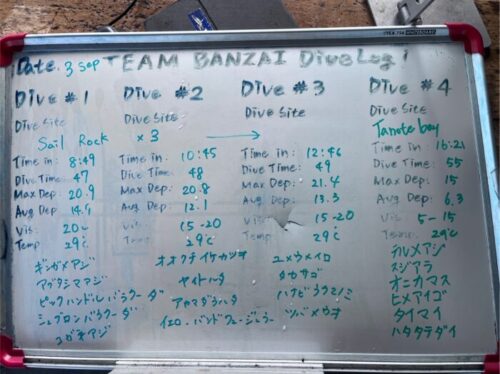 Date. 3 Sep TEAM BANZAI Dive Log!
Dive #1
Dive Site
Sail Rock × 3 →
Time in: 8:49
Dive Time: 47
Max Dep: 20.9
Avg Dep
Vis:
Temp 29℃
ギンガメアジ
アブラシマアジ
ピックハンドルバラクーダ
シェブロンバラクーダ
コガネアジ
Dive #2
Dive Site
Time in: 10:45
Dive Time: 48
Max Dep: 20.8
Avg Dep: 12.1
Vis: 15-20
Temp: 29℃
オオクチイケカツオ
ヤイトハタ
アカマダラハタ
イエローバンドフュージュラー
Dive #3
Dive Site
Time in: 12:46
Dive Time: 49
Max Dep: 21.4
Avg Dep: 13.3
Vis: 15-20
Temp: 29℃
ユメウメイロ
タカサゴ
ツバメウオ
Dive #4
Dive Site
Tanote bay
Time in: 16:21
Dive Time: 55
Max Dep: 15
Avg Dep: 6.3
Vis: 5-15
Temp: 29℃
テルメアジ
スジアラ
オニカマス
ヒメアイゴ
タイマイ
ハタタテダイ